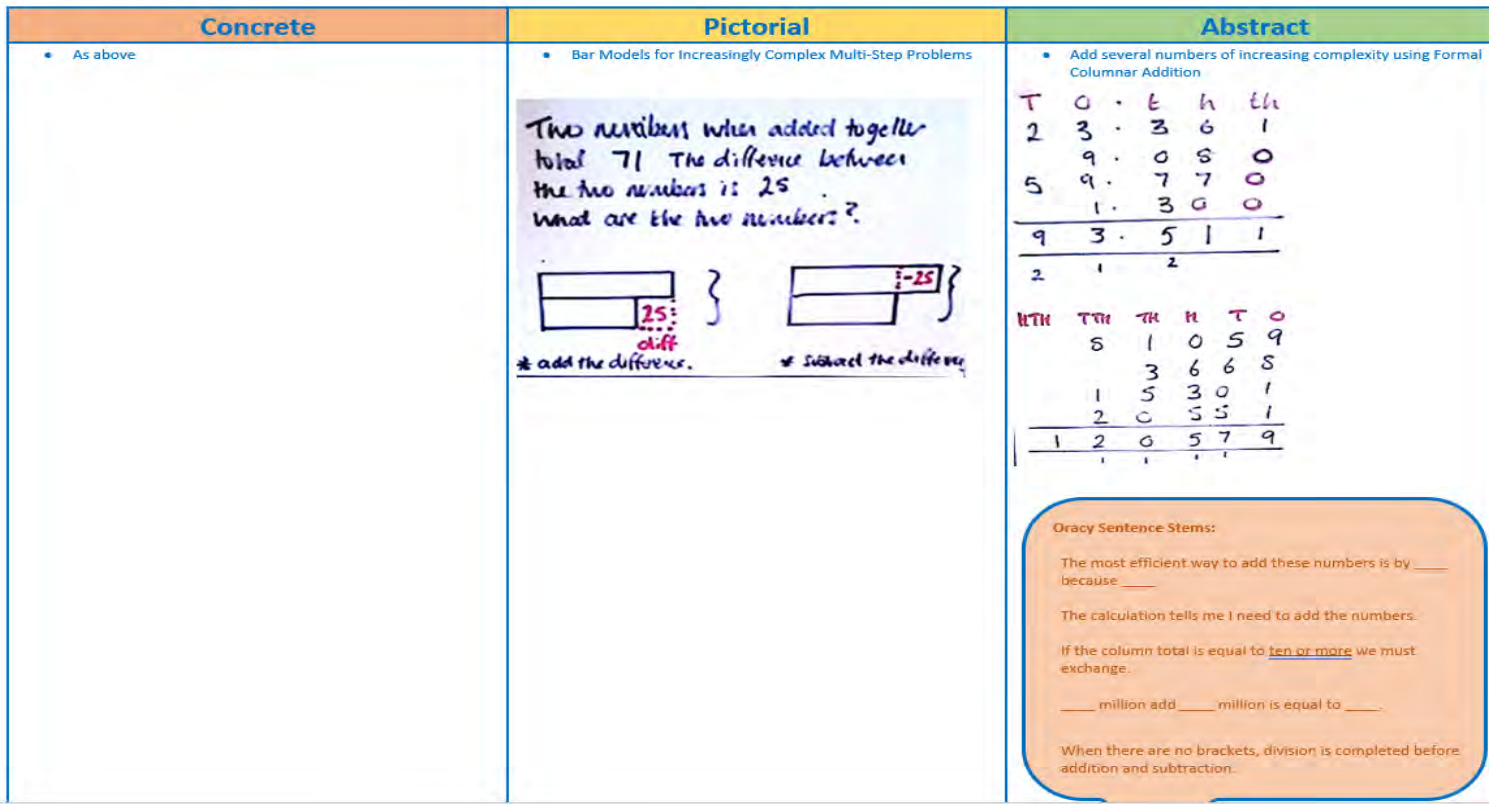 Concrete
• As above
Pictorial
• Bar Models for Increasingly Complex Multi-Step Problems
Two numbers when added together
total 71 The difference between
the two numbers is 25 .
What are the two numbers?
25
diff
* add the difference.
-25
* subtract the differen
Abstract
• Add several numbers of increasing complexity using Formal
Columnar Addition
T O . t h th
2 3 . 3 6 1
9 . 0 8 0
5 9 . 7 7 0
1 . 3 0 0
9 3 . 5 1 1
2 1 2
HTH TTH TH H T O
8 1 0 5 9
3 6 6 8
1 5 3 0 1
2 0 5 5 1
1 2 0 5 7 9
1 1 1 1
Oracy Sentence Stems:
The most efficient way to add these numbers is by ____
because ____
The calculation tells me I need to add the numbers.
If the column total is equal to ten or more we must
exchange.
____ million add ____ million is equal to ____.
When there are no brackets, division is completed before
addition and subtraction.